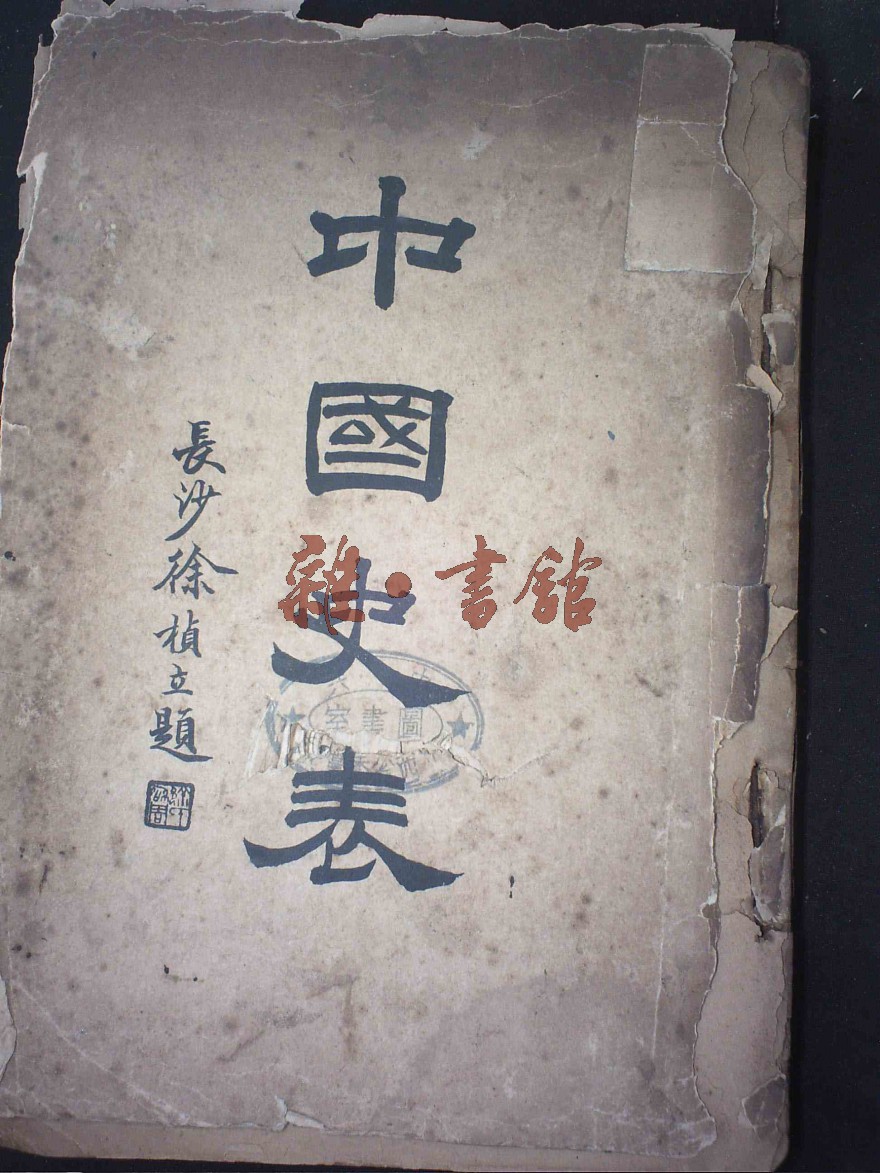 中國史表
長沙徐楨立題
雜·書館
圖書室